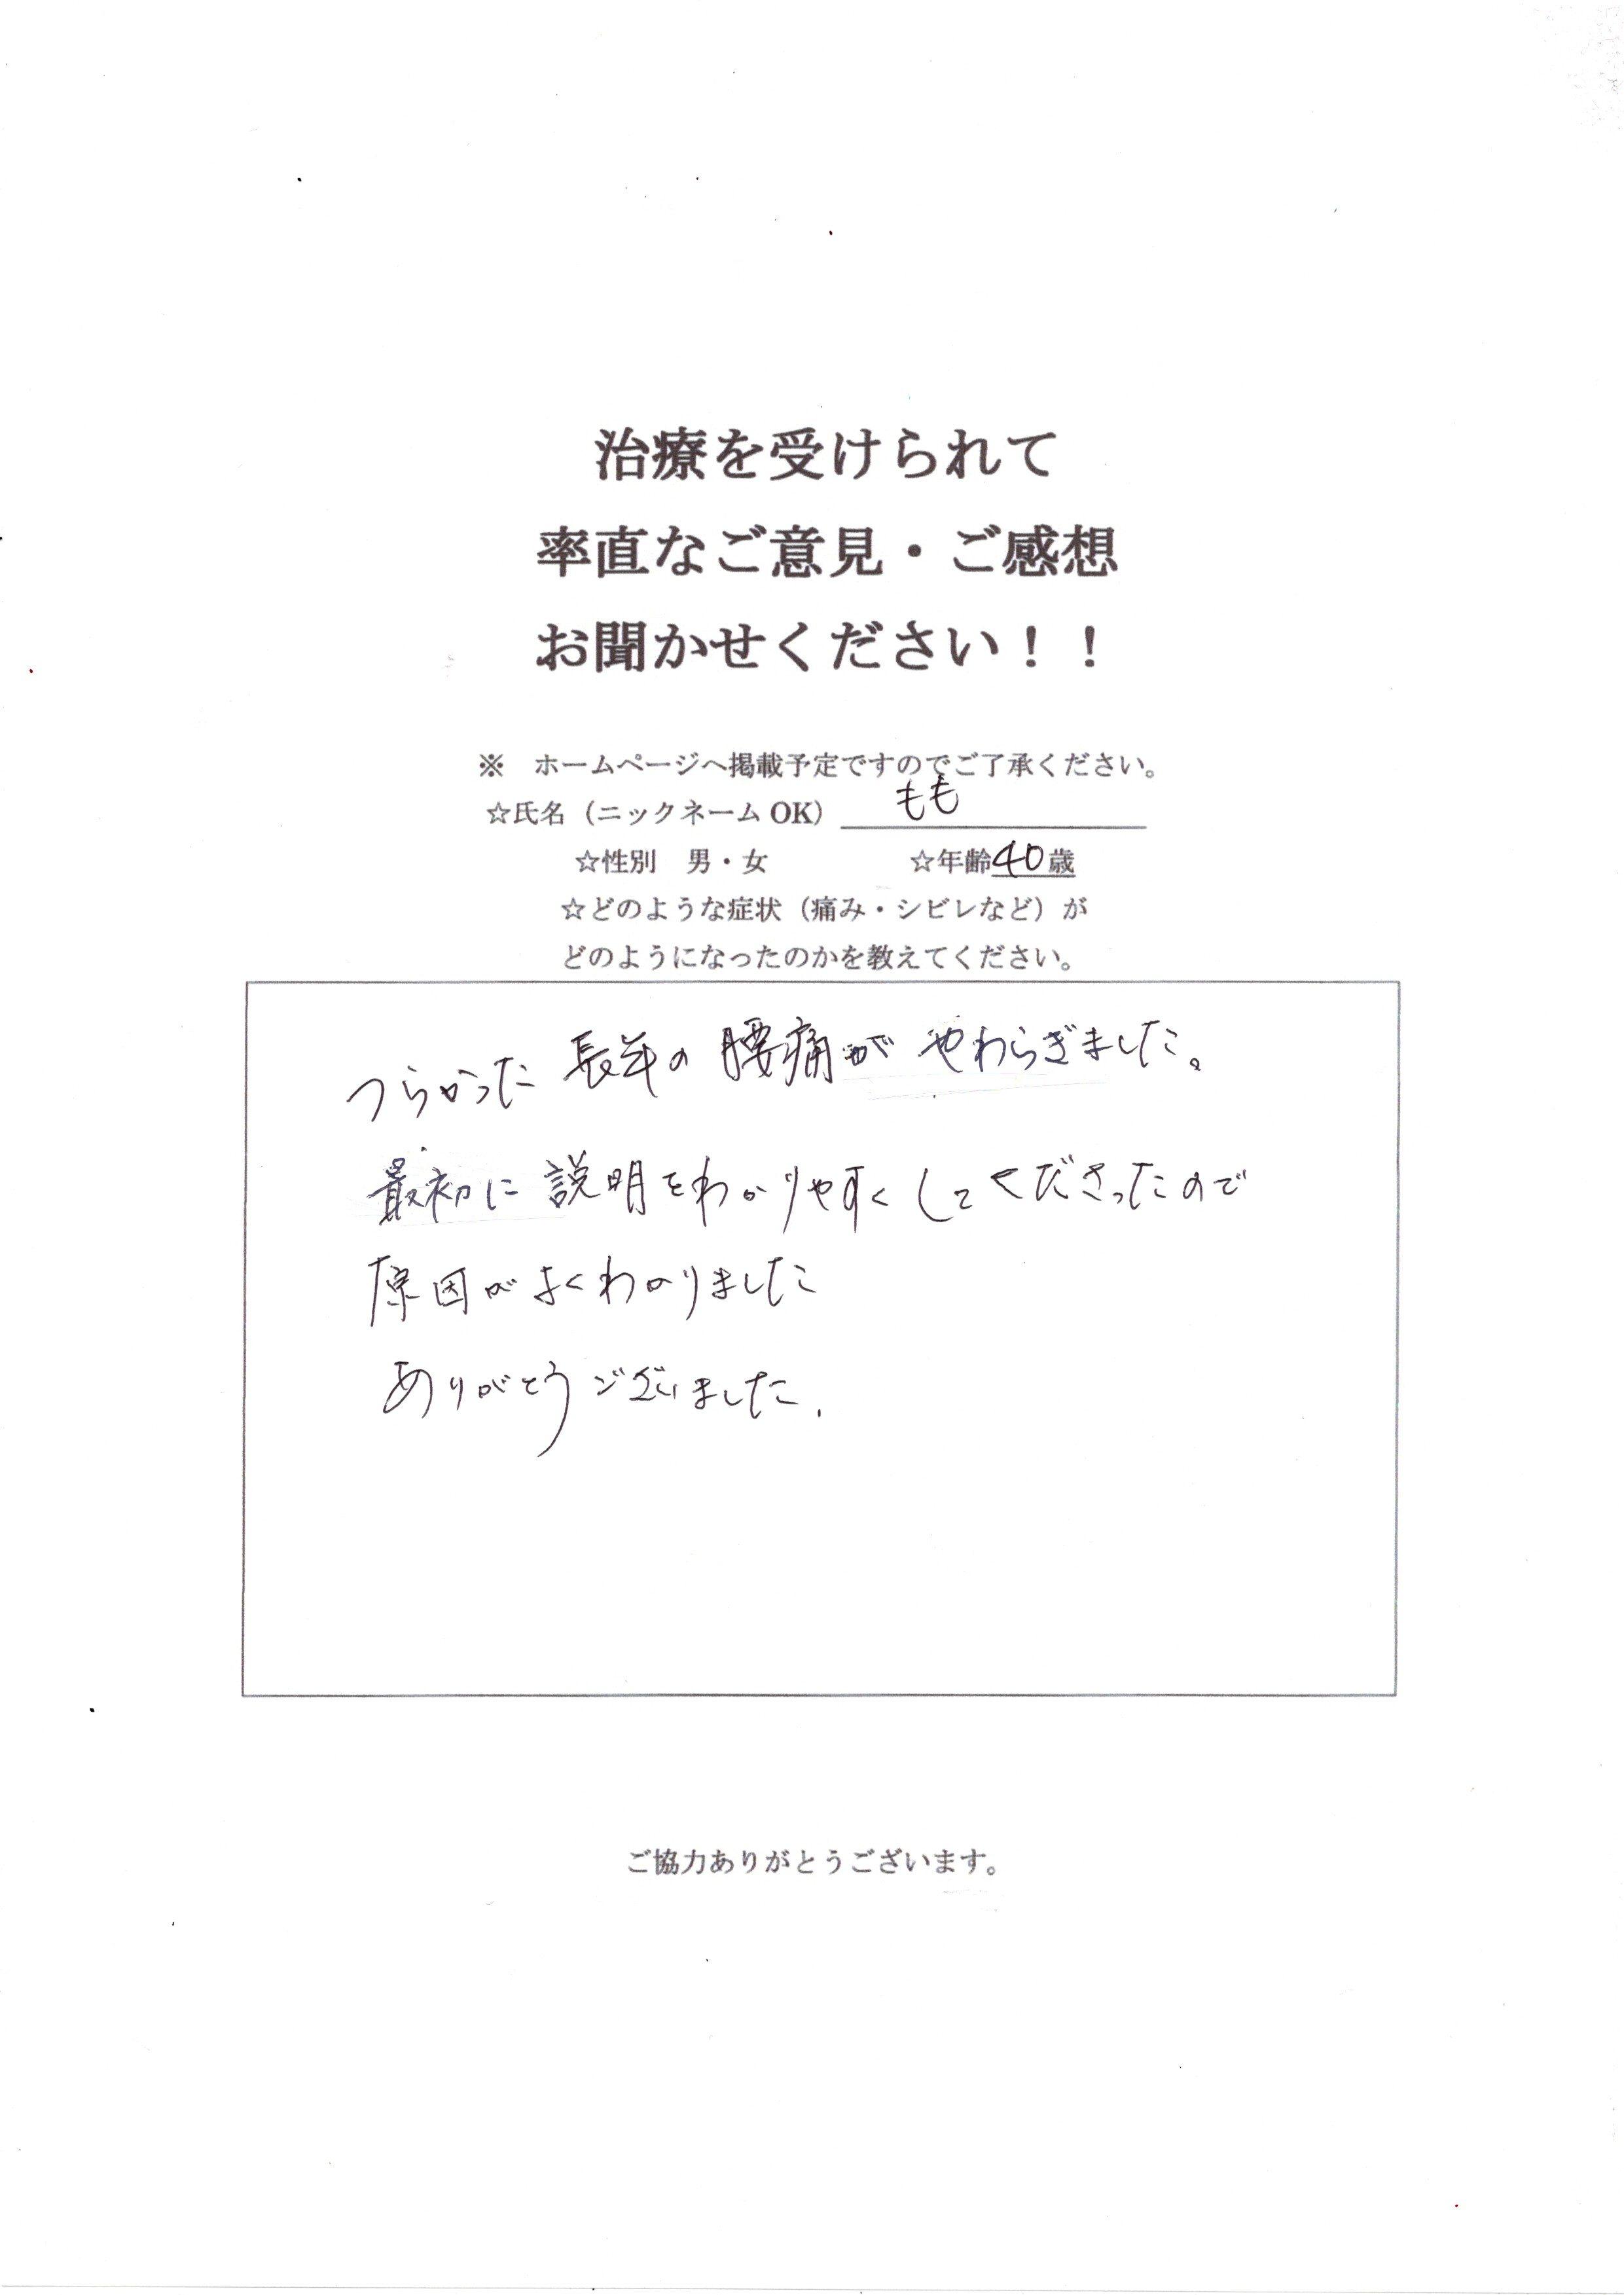 治療を受けられて
率直なご意見・ご感想
お聞かせください！！
※　ホームページへ掲載予定ですのでご了承ください。
☆氏名（ニックネームOK）もも
☆性別　男・女　☆年齢40歳
☆どのような症状（痛み・シビレなど）が
どのようになったのかを教えてください。
つらかった 長年の 腰痛が やわらぎました。
最初に 説明をわかりやすくしてくださったので
原因がよくわかりました
ありがとうございました.
ご協力ありがとうございます。